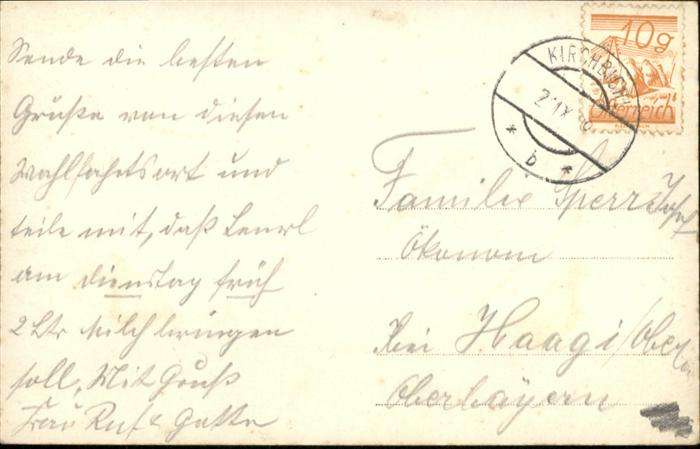 Sende die besten
Grüße von diesen
Wahlfahrtsort und
teile mit, daß
am Dienstag früh
2 Ltr Milch bringen
soll. Mit Gruß
Frau
10g
Österreich
KIRCHBICHL
b
Familie
Ökonom
bei Haag
Oberbayern